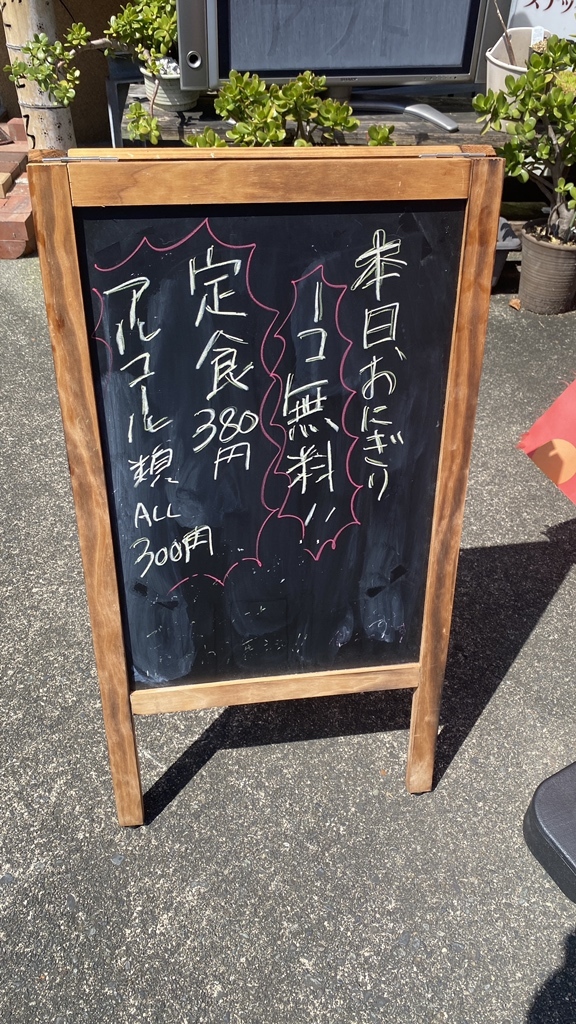 本日おにぎり
1コ無料!!
定食
380
円
アルコール類
ALL
300円
スナッ